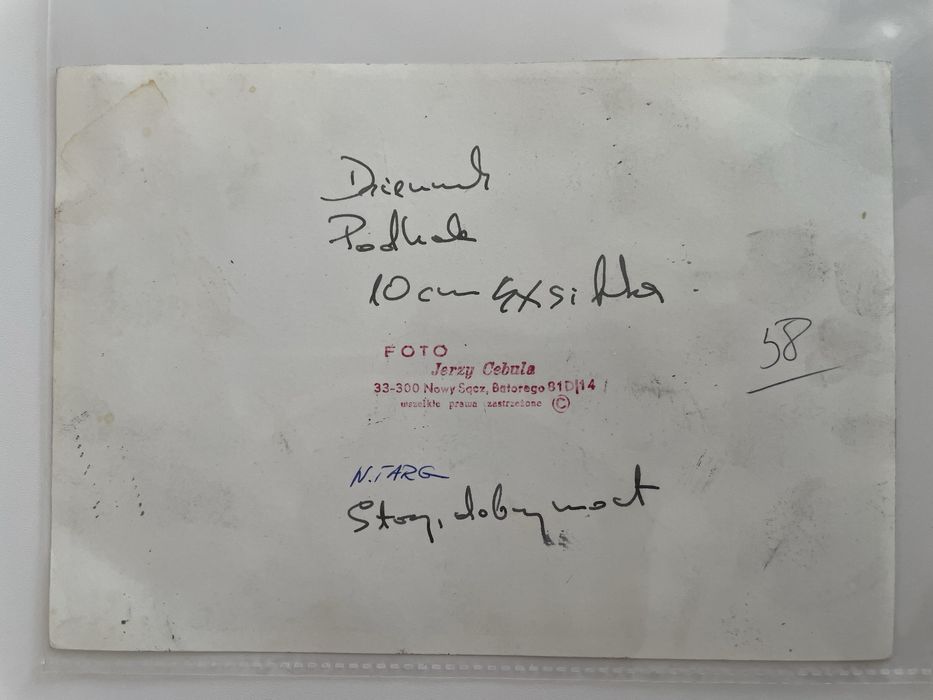 Dziennik
Podhale
10 cm
58
FOTO
Jerzy Cebula
33-300 Nowy Sącz, Batorego 81D|14
wszelkie prawa zastrzeżone ©
N.TARG
Stary, dobry most